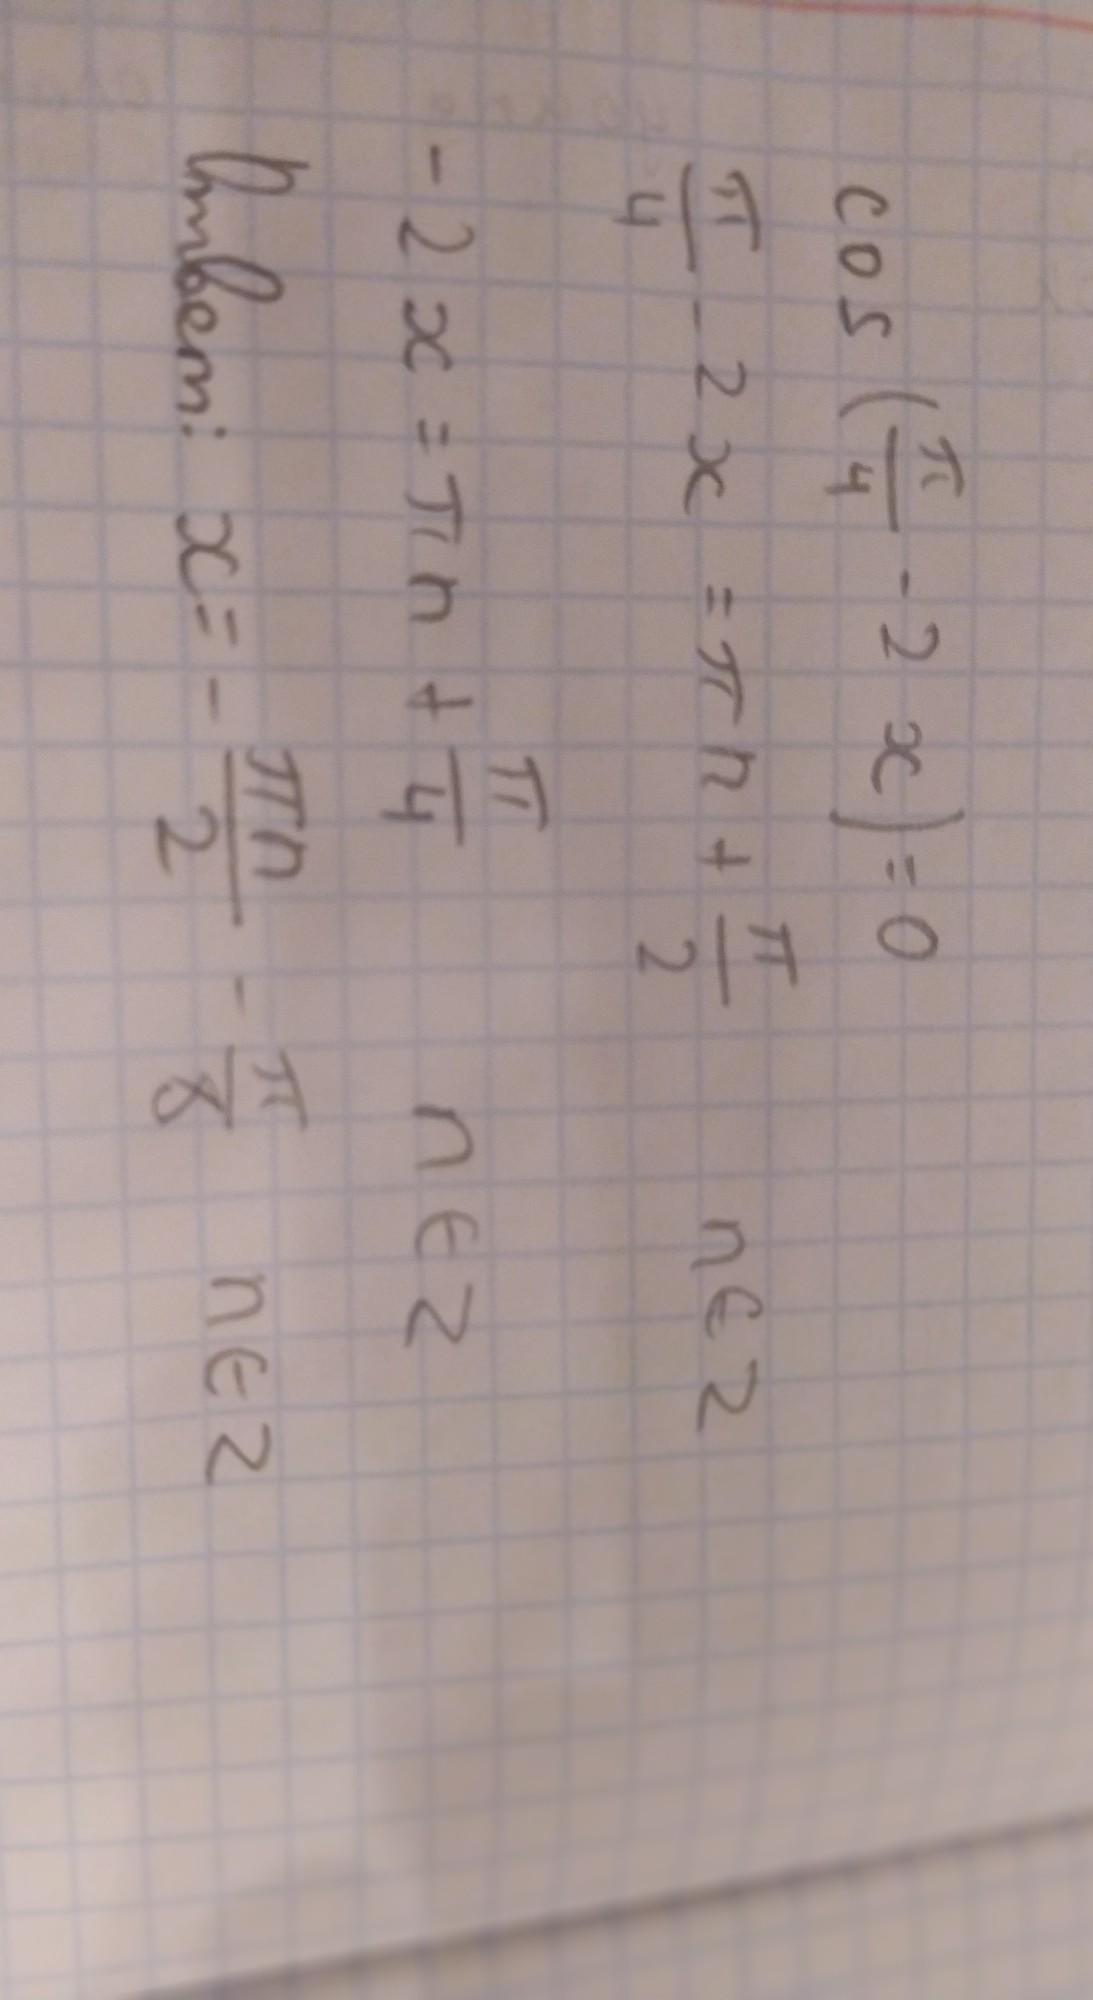 cos(π/4 - 2x) = 0
π/4 - 2x = πn + π/2 n ∈ Z
- 2x = πn + π/4 n ∈ Z
Ответ: x = - πn/2 - π/8 n ∈ Z